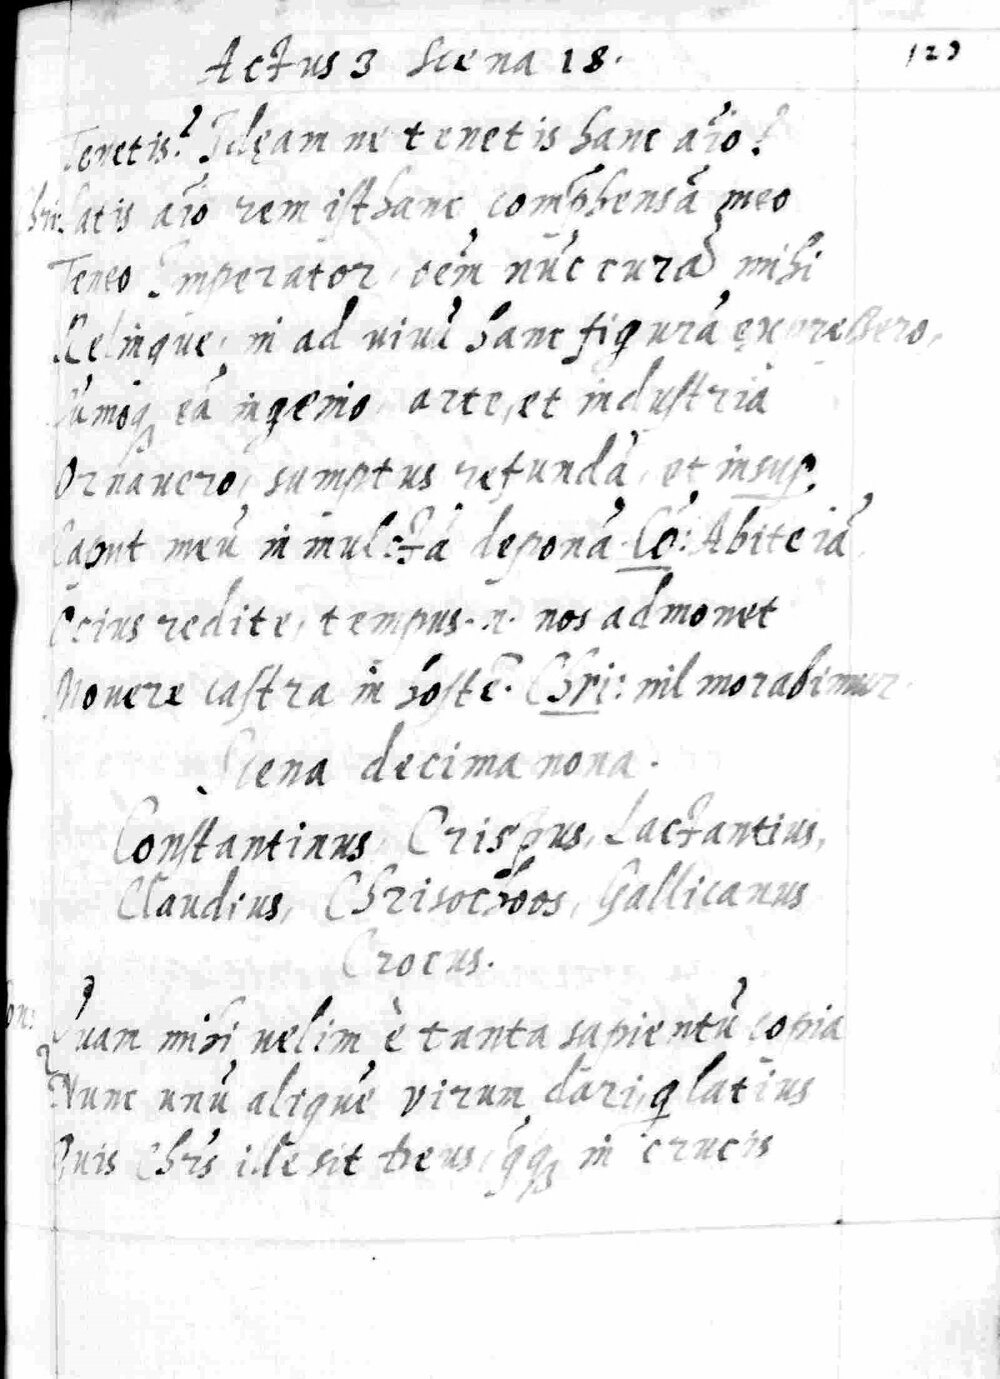 Actus 3 Scena 18. 123
Tenetis? Idęam ne tenetis hanc aĩo?
Chri: Satis aĩo rem isthanc comp̃hensã meo
Teneo Imperator, oẽm nũc curã mihi
Relinque, ni ad uiuũ hanc figurã expressero,
eã ingenio, arte, et industria
Ornauero, sumptus refundã, et insup.
Caput meũ in mulctã deponã. Cõ: Abite iã
Ocius redite, tempus .n. nos admonet
Mouere castra in hostẽ. Chri: nil morabimur.
Scena decima nona.
Constantinus, Crispus, Lactantius,
Claudius, Chrisochoos, Gallicanus
Crocus.
Con: Quam mihi uelim è tanta sapientũ copia
Nunc unũ aliquẽ virum dari, q latius
Quis Chrs̃ ille sit Deus, q̃q; in crucis